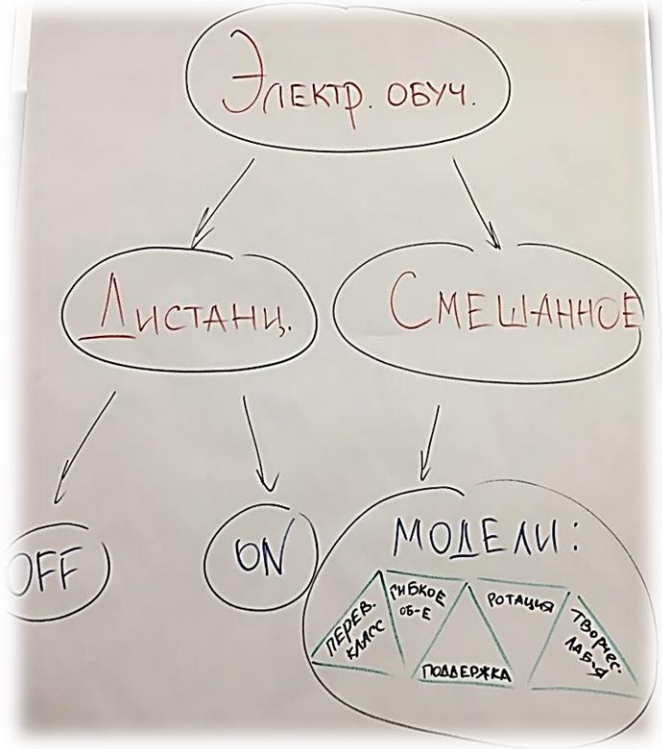 Электр. обуч.
Дистанц.
Смешанное
OFF
ON
МОДЕЛИ:
ПЕРЕВ.
КЛАСС
ГИБКОЕ
ОБ-Е
ПОДДЕРЖКА
РОТАЦИЯ
ТВОРЧЕС.
ЛАБ-Я